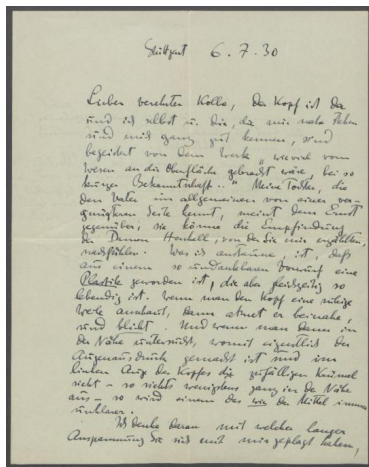 Stuttgart 6.7.30
Lieber verehrter Kolbe, der Kopf ist da
und ich selbst u. die, die mir nahe stehen
und mich ganz gut kennen, sind
begeistert von dem Werk „wieviel vom
Wesen an die Oberfläche gebracht wäre, bei so
kurzer Bekanntschaft.." Meine Tochter, die
den Vater im allgemeinen von einer ver-
gnügteren Seite kennt, meint dem Ernst
gegenüber, sie könne die Empfindung
der Damen Henkell, von der Sie mir erzählten,
nachfühlen. Was ich anstaune, ist, daß
aus einem so undankbaren Vorwurf eine
Plastik geworden ist, die aber gleichzeitig so
lebendig ist. Wenn man den Kopf eine ruhige
Weile anschaut, dann atmet er beinahe,
und blickt. Und wenn man dann in
der Nähe untersucht, womit eigentlich der
Augenausdruck gemacht ist und im
linken Auge des Kopfes die zufälligen Krümel
sieht – so siehts wenigstens ganz in der Nähe
aus – so wird einem das wie der Mittel immer
unklarer.
Ich denke daran mit welcher langer
Anspannung Sie sich mit mir geplagt haben,